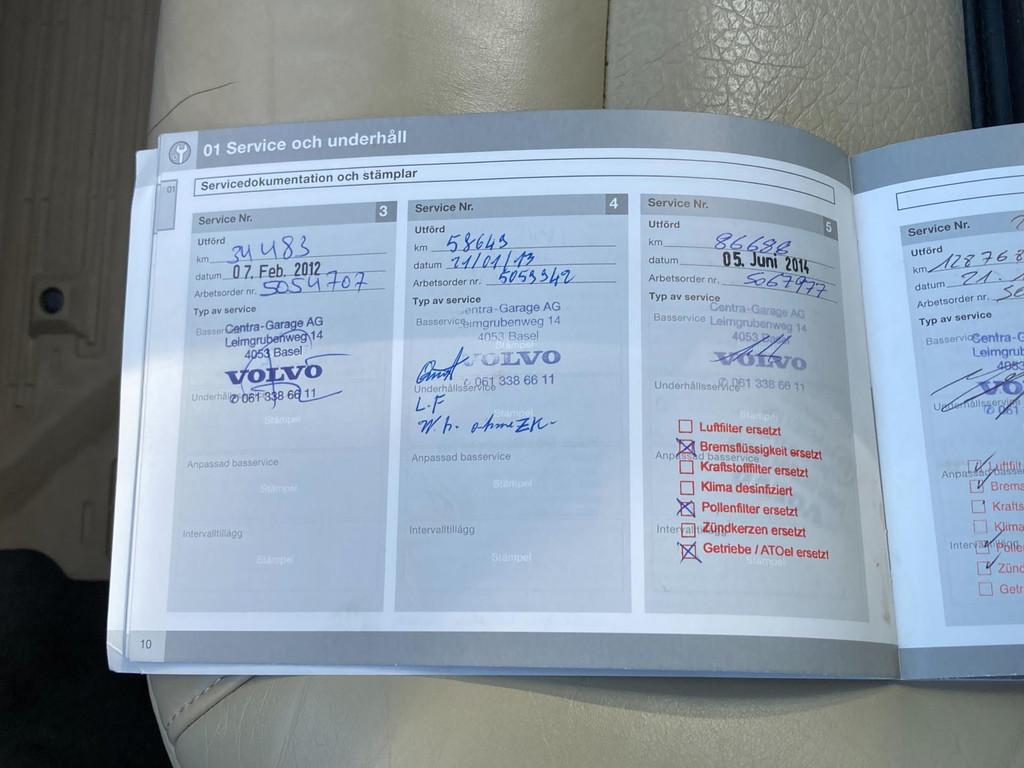 01 Service och underhåll
01
Servicedokumentation och stämplar
Service Nr. 3
Utförd
km 34483
datum 07. Feb. 2012
Arbetsorder nr. 5054707
Typ av service
Centra-Garage AG
Leimgrubenweg 14
4053 Basel
VOLVO
✆ 061 338 66 11
Stämpel
Anpassad basservice
Stämpel
Intervalltillägg
Stämpel
10
Service Nr. 4
Utförd
km 58649
datum 21/01/13
Arbetsorder nr. 5059342
Typ av service
Basservice
Centra-Garage AG
Leimgrubenweg 14
4053 Basel
Stämpel
VOLVO
✆ 061 338 66 11
Underhållsservice
L.F
W.h. ohne ZK-
Stämpel
Anpassad basservice
Stämpel
Intervalltillägg
Stämpel
Service Nr. 5
Utförd
km 86686
datum 05. Juni 2014
Arbetsorder nr. 5067977
Typ av service
Basservice
Centra-Garage AG
Leimgrubenweg 14
4053 Basel
VOLVO
✆ 061 338 66 11
Underhållsservice
Stämpel
Luftfilter ersetzt
Bremsflüssigkeit ersetzt
Anpassad basservice
Kraftstofffilter ersetzt
Klima desinfiziert
Pollenfilter ersetzt
Zündkerzen ersetzt
Getriebe / ATOel ersetzt
Stämpel
Service Nr.
Utförd
km 12876
datum 21.
Arbetsorder nr.
Typ av service
Basservice
Centra-G
Leimgru
4053
VO
✆ 061
Underhållsservice
Luftfilt
Brems
Krafts
Klima
Polle
Zünd
Getr